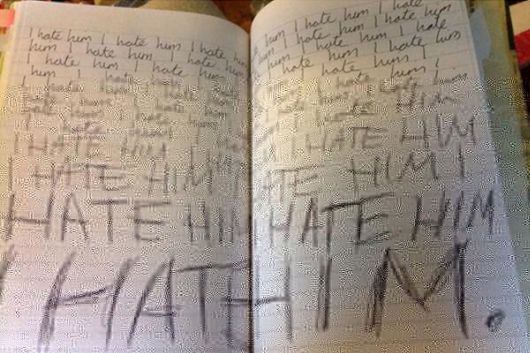 I hate him I hate him I hate
him I hate him I hate him
I hate him I hate him
him I hate him
I hate him I hate him
hate him I hate him
I hate him
I HATE HIM I
I HATE HIM
HATE HIM
I HATE
him I hate him I hate
him I hate him I hate him
him I hate him I hate
I hate him I hate him
hate him I
I hate him I hate him
I hate HIM
I HATE HIM
HATE HIM I
HATE HIM
HIM.